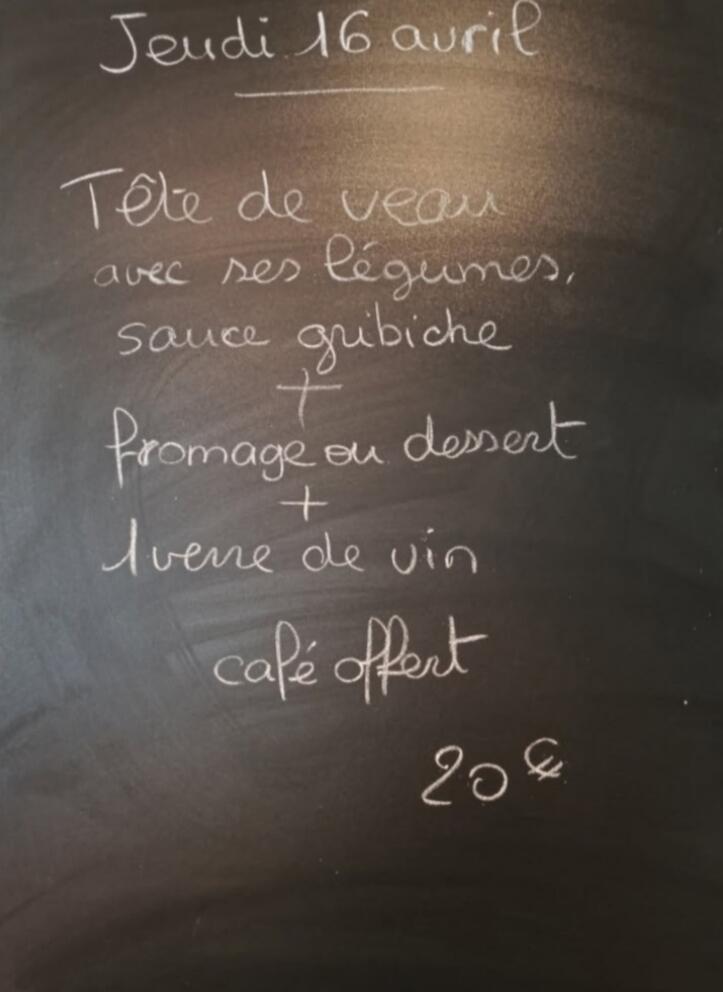 Jeudi 16 avril
Tête de veau
avec ses légumes,
sauce gribiche
+
fromage ou dessert
+
1 verre de vin
café offert
20 €